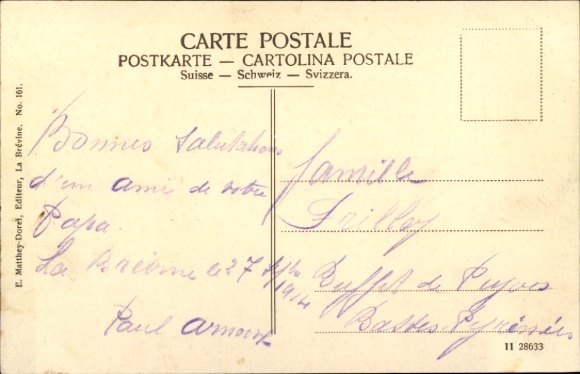 CARTE POSTALE
POSTKARTE — CARTOLINA POSTALE
Suisse — Schweiz — Svizzera.
E. Matthey-Doret, Editeur, La Brévine. No. 161.
Bonnes Salutations
d'un ami de votre
Papa.
La Brévine le 27
Paul
famille
Buffet de Puyoo
Basses-Pyrénées
11 28633